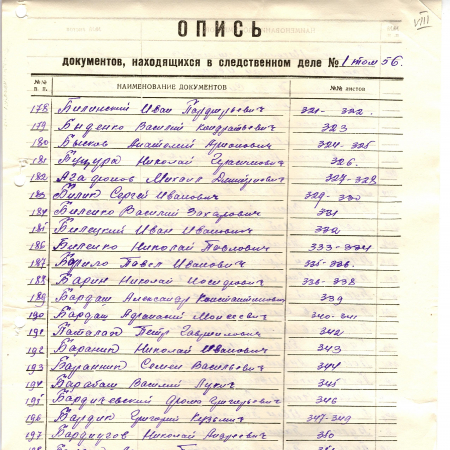 VIII
ОПИСЬ
документов, находящихся в следственном деле № 1 том 56.
№№ п. п. НАИМЕНОВАНИЕ ДОКУМЕНТОВ №№ листов
178 Билинский Иван 321-322.
179 Быденко Василий Кондратьевич 323
180 Бысков Анатолий 324-325
181 Буцура Николай Герасимович 326.
182 Агафонов Михаил Дмитриевич 327-328
183 Билик Сергей Иванович 329-330
184 Биленко Василий Захарович 331
185 Билецкий Иван Иванович 332
186 Биленко Николай Павлович 333-334
187 Барило Павел Иванович 335-336.
188 Барин Николай Иосифович 336-338
189 Бардаш Александр Константинович 339
190 Бардаш Афанасий Моисеевич 340-341
191 Паталах Петр Гаврилович 342
192 Бараник Николай Иванович 343
193 Баранник Семен Васильевич 344
194 Барабаш Василий Лукич 345
195 Бардичевский Григорьевич 346
196 Бардик Григорий Кузьмич 347-349
197 Николай Андреевич 350